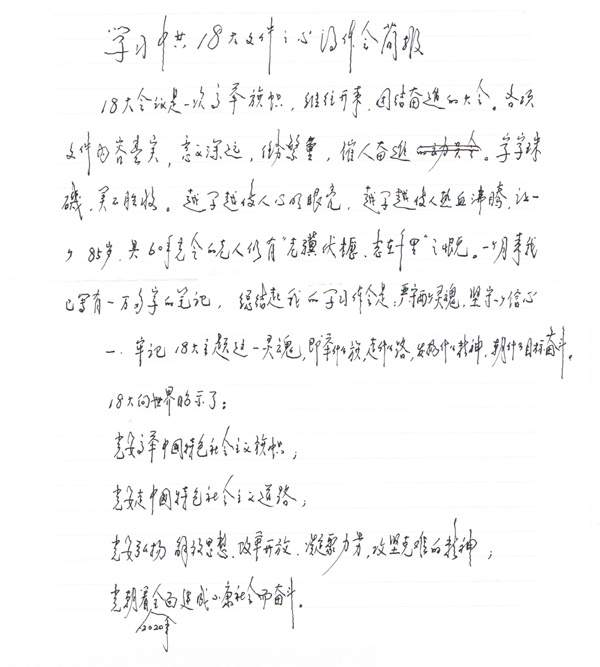 学习中共18大文件之心得体会简报
18大会议是一次高举旗帜，继往开来，团结奋进的大会。各项
文件内容丰实，意义深远，任务繁重，催人奋进。字字珠
玑，美不胜收。越学越使人心明眼亮，越学越使人热血沸腾，让一
个85岁，具60年党令的老人仍有“老骥伏枥，志在千里”之慨。一个月来我
已写有一万多字的笔记，归结起我的学习体会是：严守两个灵魂，坚定一个信心
一、牢记18大主题这一灵魂，即举什么旗，走什么路，发扬什么精神，朝什么目标奋斗。
18大向世界昭示了：
党要高举中国特色社会主义旗帜；
党要走中国特色社会主义道路；
党要弘扬解放思想、改革开放、凝聚力量，攻坚克难的精神；
党朝着全面建成小康社会而奋斗。
2020年